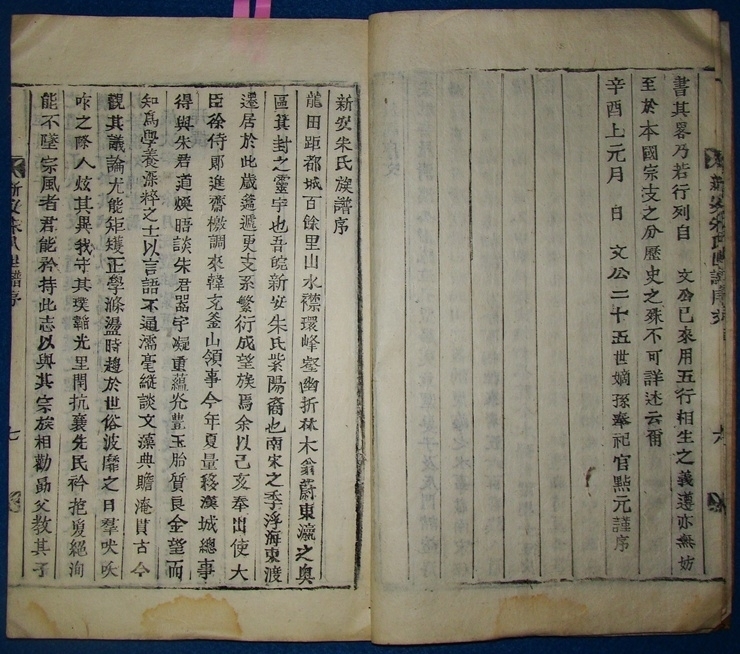 書其畧乃若行列自 文公已來用五行相生之義遵亦無妨
至於本國宗支之分歷史之殊不可詳述云爾
辛酉上元月 日 文公二十五世嫡孫奉祀官點元謹序
新安朱氏世譜序文
六
新安朱氏族譜序
龍田距都城百餘里山水襟環峰壑幽折林木蓊蔚東瀛之奧
區箕封之靈宇也吾皖新安朱氏紫陽裔也南宋之季浮海東渡
遷居於此歲籥遞更支系繁衍成望族焉余以己亥奉出使大
臣徐侍郎進齋檄調來韓充釜山領事今年夏量移漢城總事
得與朱君道煥晤談朱君器宇凝重蘊光豐玉胎質良金望而
知爲學養深粹之士以言語不通濡毫縱談文藻典贍淹貫古今
觀其議論尤能矩矱正學滌盪時趨於世俗波靡之日羣吠吠
之際人炫其異我守其璞韜光里閈抗襄先民衿抱夐絕洵
能不墜宗風者君能矜持此志以與其宗族相勸勗父教其子
新安朱氏世譜序
七